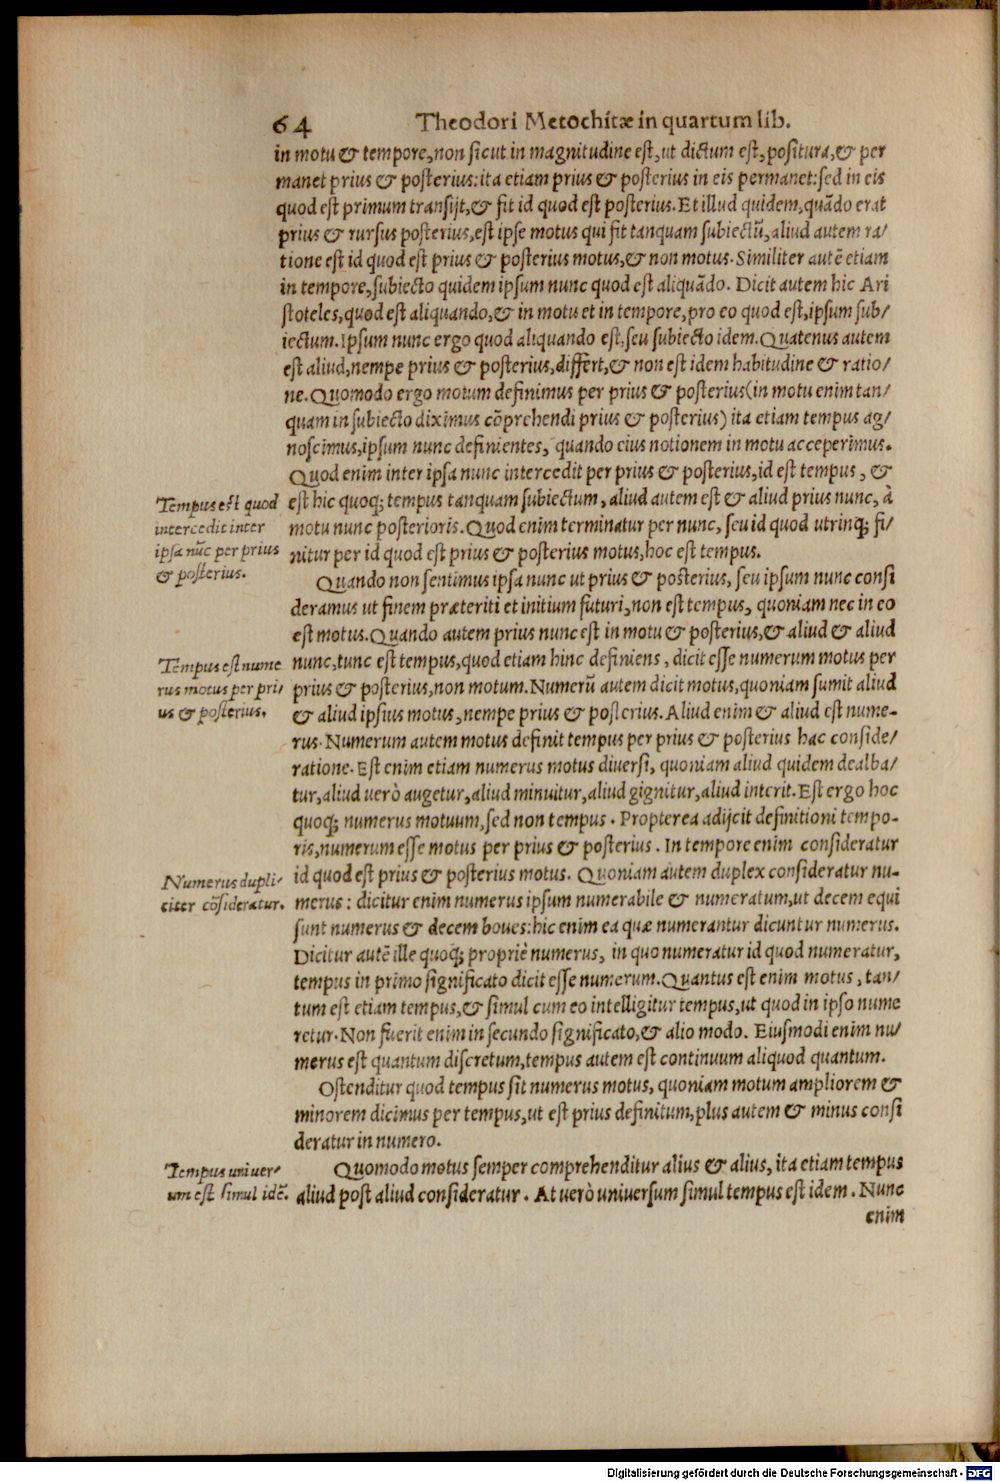 64 Theodori Metochitæ in quartum lib.
in motu & tempore, non sicut in magnitudine est, ut dictum est, positura, & per
manet prius & posterius: ita etiam prius & posterius in eis permanet: sed in eis
quod est primum transijt, & fit id quod est posterius. Et illud quidem, quãdo erat
prius & rursus posterius, est ipse motus qui fit tanquam subiectũ, aliud autem ra/
tione est id quod est prius & posterius motus, & non motus. Similiter autẽ etiam
in tempore, subiecto quidem ipsum nunc quod est aliquãdo. Dicit autem hic Ari
stoteles, quod est aliquando, & in motu et in tempore, pro eo quod est, ipsum sub/
iectum. Ipsum nunc ergo quod aliquando est, seu subiecto idem. Quatenus autem
est aliud, nempe prius & posterius, differt, & non est idem habitudine & ratio/
ne. Quomodo ergo motum definimus per prius & posterius (in motu enim tan/
quam in subiecto diximus cõprehendi prius & posterius) ita etiam tempus ag/
noscimus, ipsum nunc definientes, quando eius notionem in motu acceperimus.
Quod enim inter ipsa nunc intercedit per prius & posterius, id est tempus, &
est hic quoq; tempus tanquam subiectum, aliud autem est & aliud prius nunc, à
motu nunc posterioris. Quod enim terminatur per nunc, seu id quod utrinq; fi/
nitur per id quod est prius & posterius motus, hoc est tempus.
Tempus est quod
intercedit inter
ipsa nũc per prius
& posterius.
Quando non sentimus ipsa nunc ut prius & posterius, seu ipsum nunc consi
deramus ut finem præteriti et initium futuri, non est tempus, quoniam nec in eo
est motus. Quando autem prius nunc est in motu & posterius, & aliud & aliud
nunc, tunc est tempus, quod etiam hinc definiens, dicit esse numerum motus per
prius & posterius, non motum. Numerũ autem dicit motus, quoniam sumit aliud
& aliud ipsius motus, nempe prius & posterius. Aliud enim & aliud est nume-
rus. Numerum autem motus definit tempus per prius & posterius hac conside/
ratione. Est enim etiam numerus motus diuersi, quoniam aliud quidem dealba/
tur, aliud uerò augetur, aliud minuitur, aliud gignitur, aliud interit. Est ergo hoc
quoq; numerus motuum, sed non tempus. Propterea adijcit definitioni tempo-
ris, numerum esse motus per prius & posterius. In tempore enim consideratur
id quod est prius & posterius motus. Quoniam autem duplex consideratur nu-
merus: dicitur enim numerus ipsum numerabile & numeratum, ut decem equi
sunt numerus & decem boues: hic enim ea quæ numerantur dicuntur numerus.
Dicitur autẽ ille quoq; propriè numerus, in quo numeratur id quod numeratur,
tempus in primo significato dicit esse numerum. Quantus est enim motus, tan/
tum est etiam tempus, & simul cum eo intelligitur tempus, ut quod in ipso nume
retur. Non fuerit enim in secundo significato, & alio modo. Eiusmodi enim nu/
merus est quantum discretum, tempus autem est continuum aliquod quantum.
Tempus est nume
rus motus per pri/
us & posterius.
Numerus dupli/
citer cõsideratur.
Ostenditur quod tempus sit numerus motus, quoniam motum ampliorem &
minorem dicimus per tempus, ut est prius definitum, plus autem & minus consi
deratur in numero.
Quomodo motus semper comprehenditur alius & alius, ita etiam tempus
aliud post aliud consideratur. At uerò uniuersum simul tempus est idem. Nunc
Tempus uniuer/
um est simul idẽ.
enim
Digitalisierung gefördert durch die Deutsche Forschungsgemeinschaft - DFG